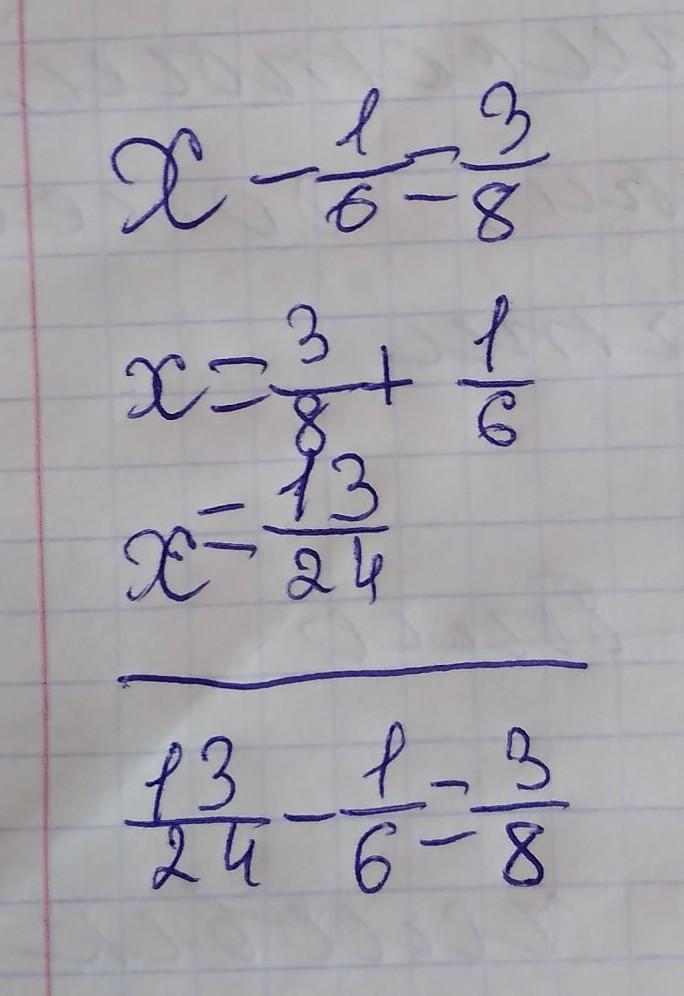 x - 1/6 = 3/8
x = 3/8 + 1/6
x = 13/24
13/24 - 1/6 = 3/8